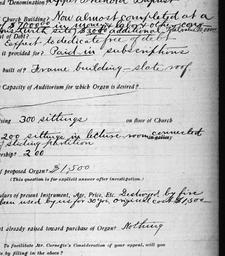 Denomination
Church Building? Now almost completed at a
$30000 additional
of Debt? Expect to dedicate free of debt
it provided for? Paid in subscriptions
built of? Frame building - slate roof
Capacity of Auditorium for which Organ is desired?
300 sittings on floor of Church
200 sittings in lecture room connected
sliding partition
200
proposed Organ? $1,500
(This question is for explicit answer after investigation.)
of present Instrument, Age, Price, Etc. Destroyed by fire
been used by us for 30 yrs, original cost $1,500
already raised toward purchase of Organ? Nothing
To facilitate Mr. Carnegie's Consideration of your appeal, will you
by filling in the above?